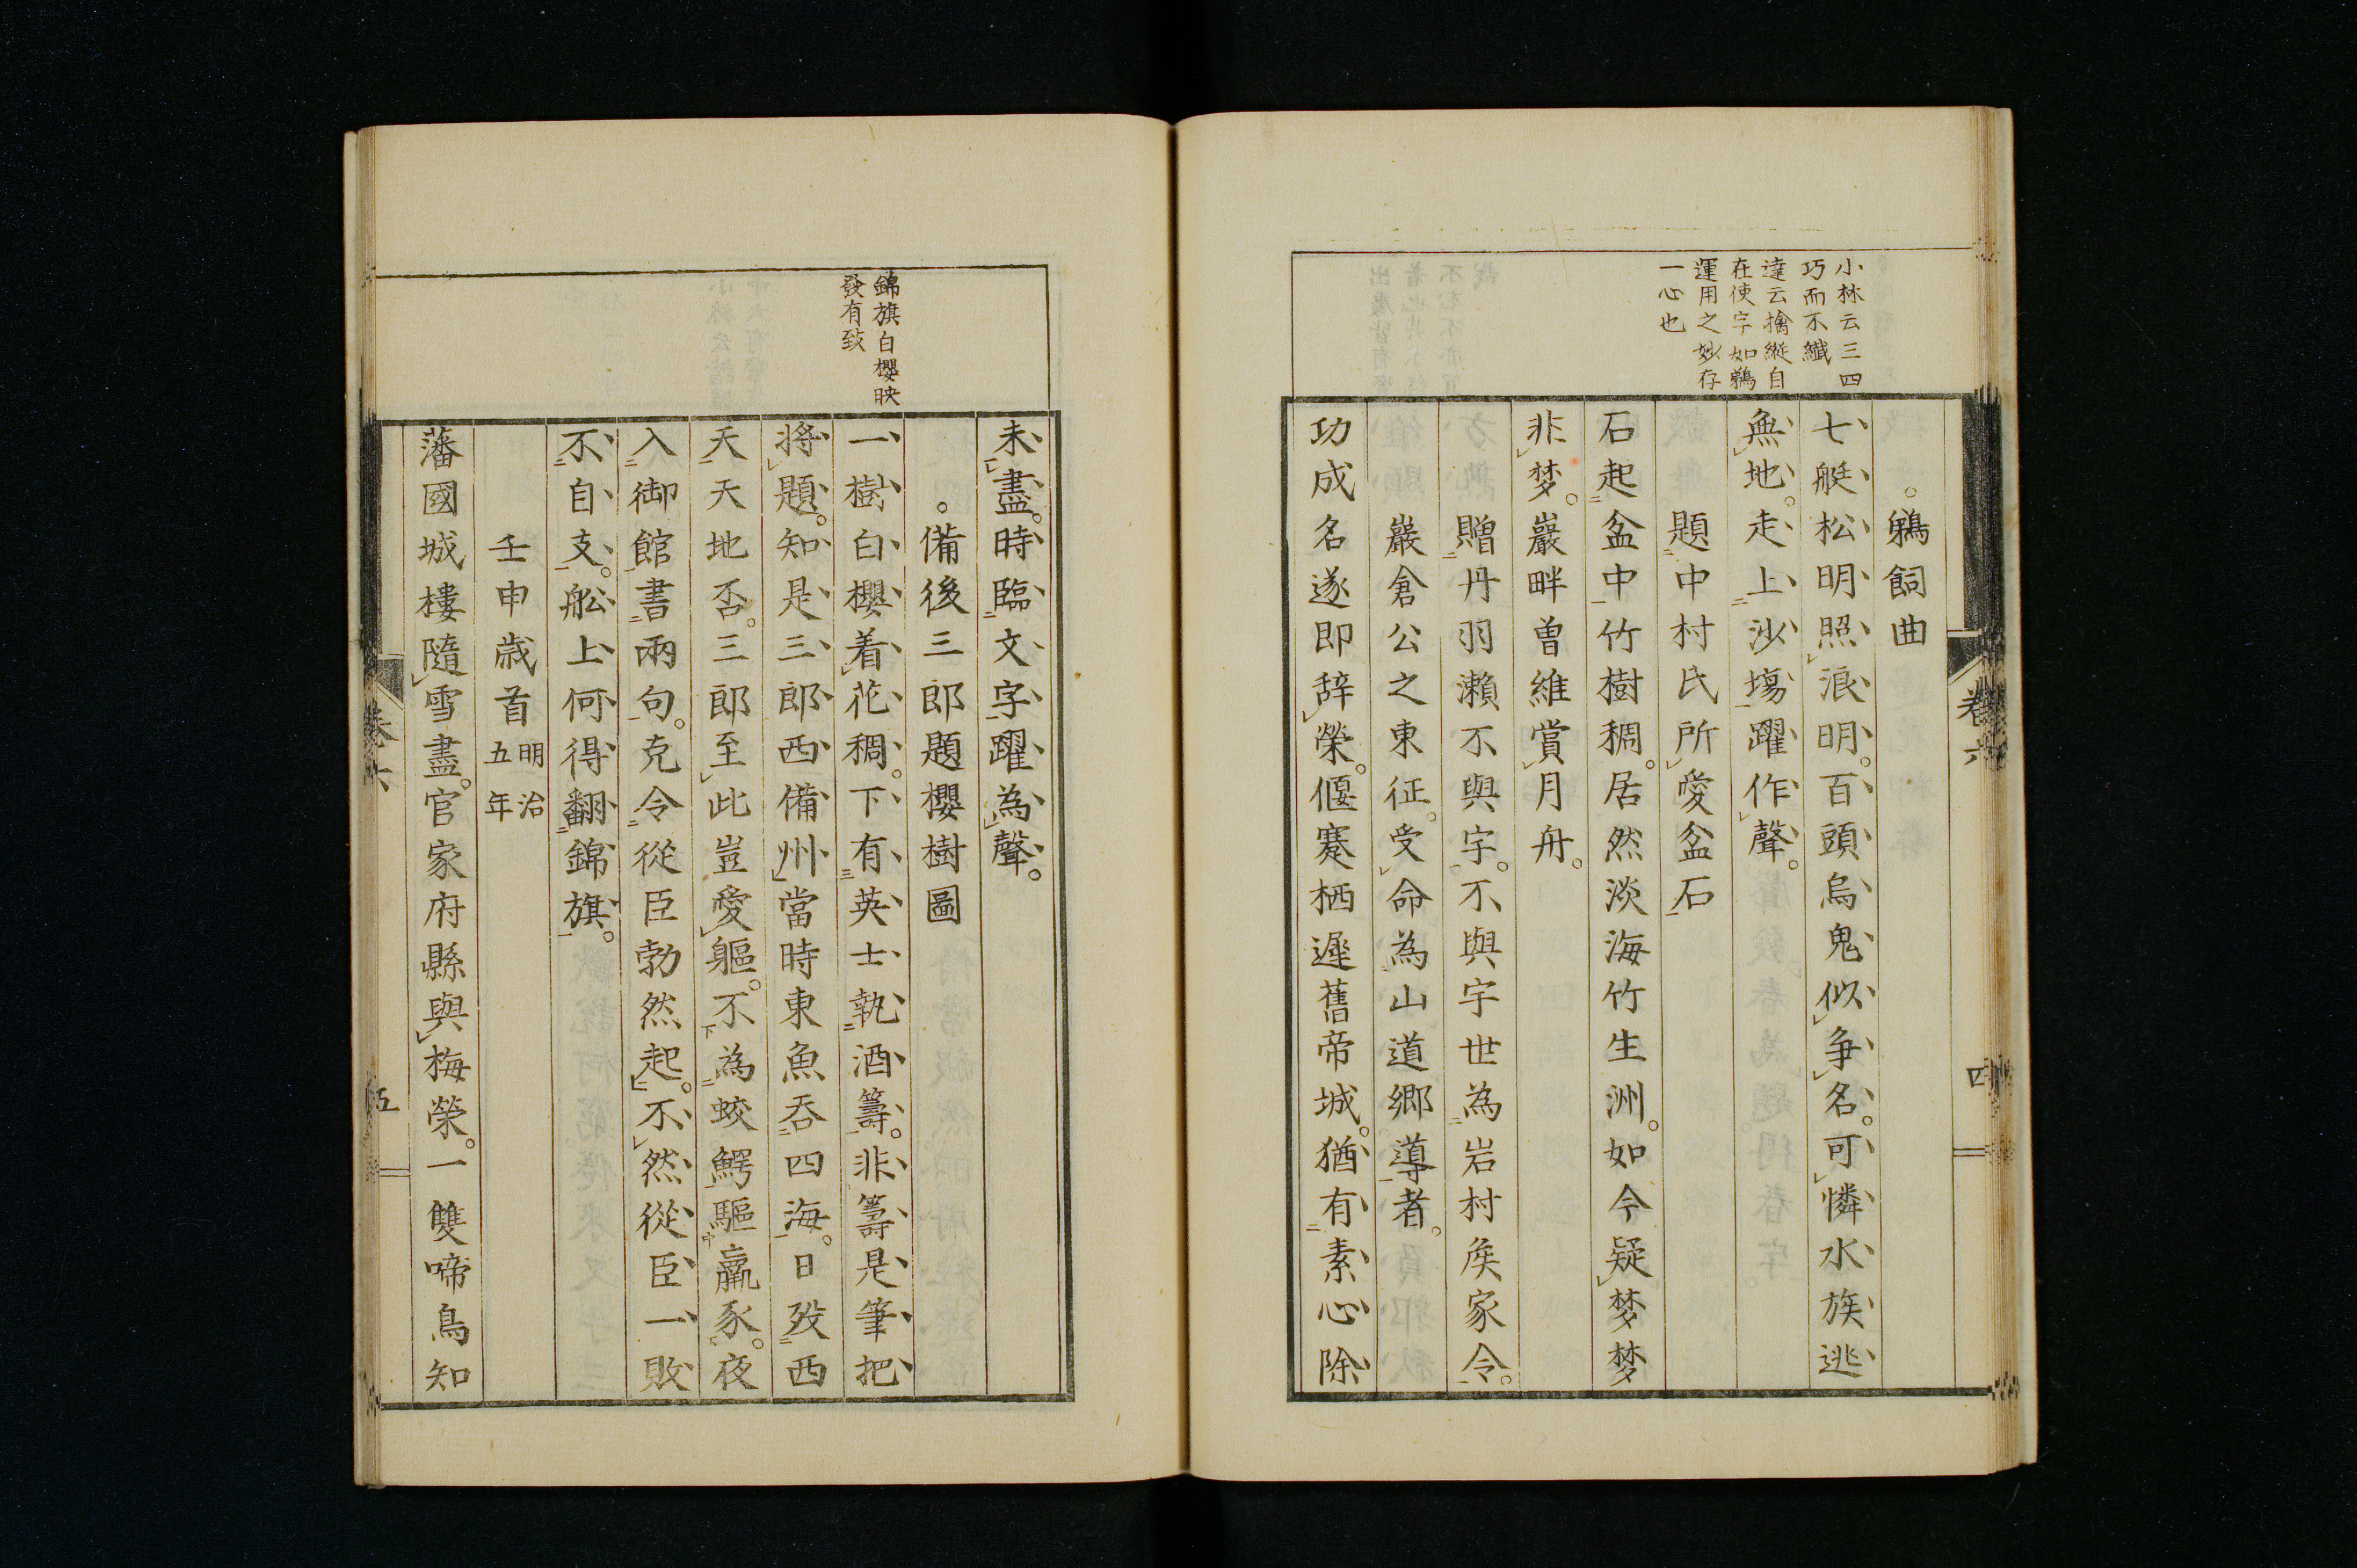 小林云三四
巧而不纖
達云擒縱自
在使字如鵜
運用之妙存
一心也
鵜飼曲
七艇松明照浪明。百頭烏鬼似爭名。可憐水族逃
無地。走上沙場躍作聲。
題中村氏所愛盆石
石起盆中竹樹稠。居然淡海竹生洲。如今疑梦梦
非梦。巖畔曽維賞月舟。
贈丹羽瀬不與字。不與字世為岩村矦家令。
巖倉公之東征。受命為山道鄉導者。
功成名遂即辞榮。偃蹇栖遲舊帝城。猶有素心除
卷六
四
錦旗白櫻映
發有致
未盡。時臨文字躍為聲。
備後三郎題櫻樹圖
一樹白櫻着花稠。下有英士執酒籌。非籌是筆把
將題。知是三郎西備州。當時東魚吞四海。日歿西
天天地否。三郎至此豈愛軀。不為蛟鰐驅羸豕。夜
入御館書兩句。克令從臣勃然起。不然從臣一敗
不自支。舩上何得翻錦旗。
壬申歳首明治五年
藩國城樓隨雪盡。官家府縣與梅榮。一雙啼鳥知
卷六
五